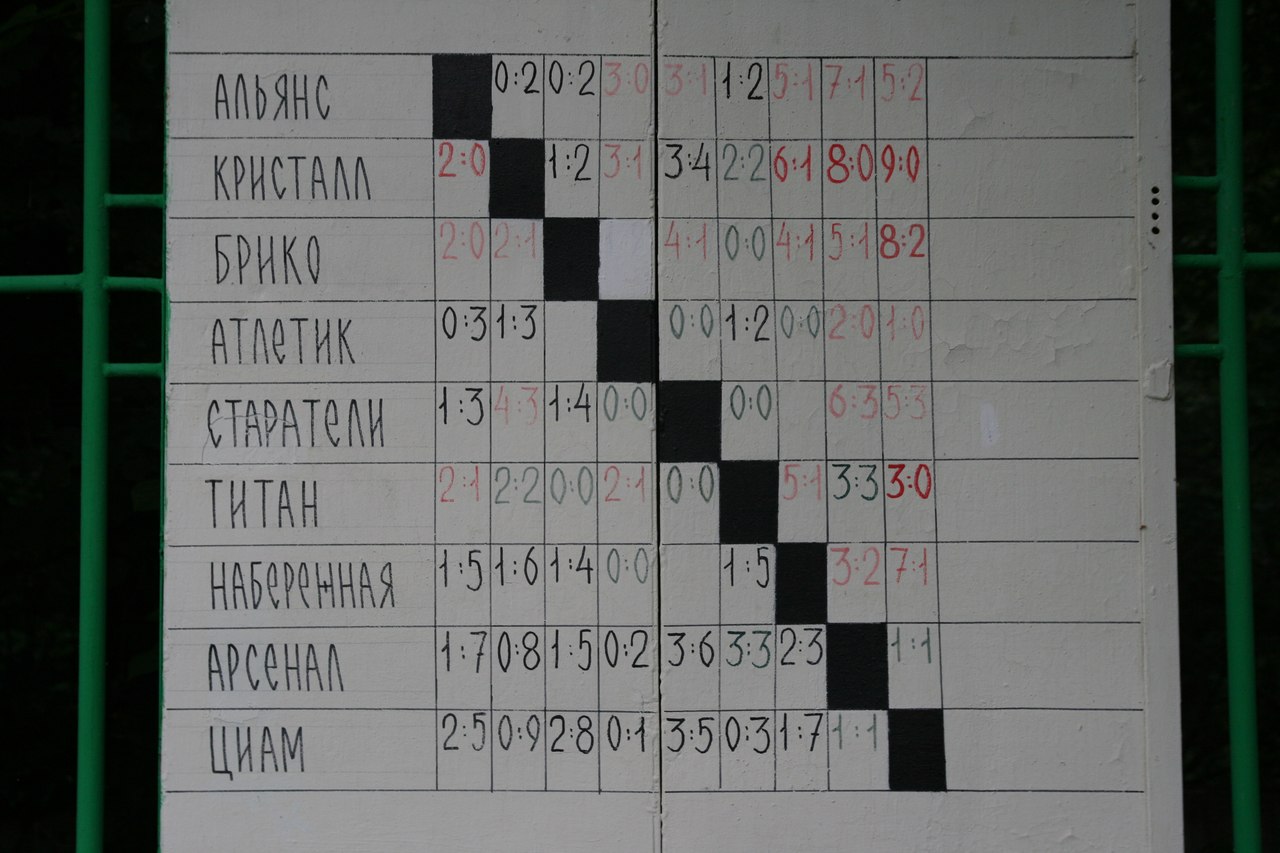 АЛЬЯНС 0:2 0:2 3:0 3:1 1:2 5:1 7:1 5:2
КРИСТАЛЛ 2:0 1:2 3:1 3:4 2:2 6:1 8:0 9:0
БРИКО 2:0 2:1 4:1 0:0 4:1 5:1 8:2
АТЛЕТИК 0:3 1:3 0:0 1:2 0:0 2:0 1:0
СТАРАТЕЛИ 1:3 4:3 1:4 0:0 0:0 6:3 5:3
ТИТАН 2:1 2:2 0:0 2:1 0:0 5:1 3:3 3:0
НАБЕРЕЖНАЯ 1:5 1:6 1:4 0:0 1:5 3:2 7:1
АРСЕНАЛ 1:7 0:8 1:5 0:2 3:6 3:3 2:3 1:1
ЦИАМ 2:5 0:9 2:8 0:1 3:5 0:3 1:7 1:1